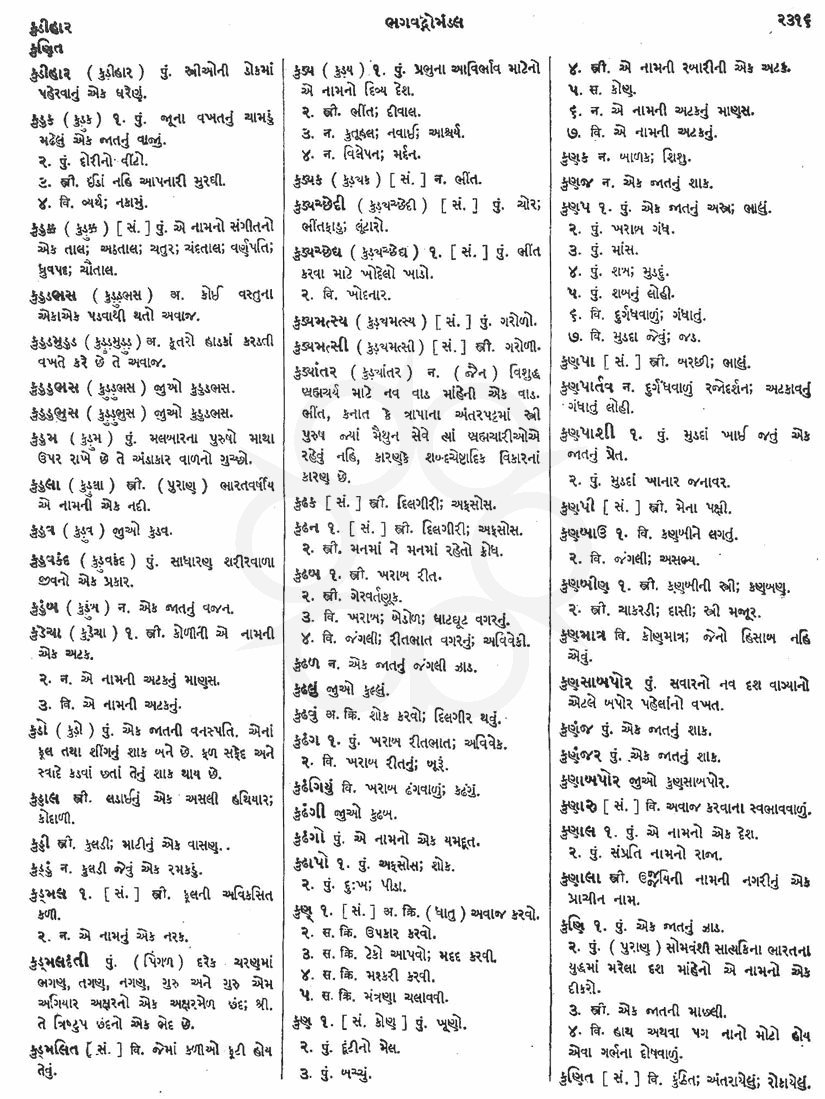 કુડીહાર
કુણિત
ભગવદ્ગોમંડલ
૨૩૧૬
કુડીહાર ( કુડીહાર ) પું. સ્ત્રીઓની ડોકમાં
પહેરવાનું એક ઘરેણું.
કુડુક ( કુડુક ) ૧. પું. જૂના વખતનું ચામડું
મઢેલું એક જાતનું વાજું.
૨. પું. દોરીનો વીંટો.
૩. સ્ત્રી. ઈંડાં નહિ આપનારી મુરઘી.
૪. વિ. વ્યર્થ; નકામું.
કુડુક્ક ( કુડુક્ક ) [ સં. ] પું. એ નામનો સંગીતનો
એક તાલ; અઠતાલ; ચતુર; ચંદતાલ; વર્ણુપતિ;
ધ્રુવપદ; ચૌતાલ.
કુડુડભસ ( કુડુડ્ભસ ) અ. કોઈ વસ્તુના
એકાએક પડવાથી થતો અવાજ.
કુડુડમુડુડ ( કુડુડમુડુડ ) અ. કૂતરો હાડકાં કરડતી
વખતે કરે છે તે અવાજ.
કુડુડુભસ ( કુડુડુભસ ) જુઓ કુડુડભસ.
કુડુડુભુસ ( કુડુડુભુસ ) જુઓ કુડુડભસ.
કુડુમ ( કુડુમ ) પું. મલબારના પુરુષો માથા
ઉપર રાખે છે તે અંડાકાર વાળનો ગુચ્છો.
કુડુલા ( કુડુલા ) સ્ત્રી. ( પુરાણ ) ભારતવર્ષીય
એ નામની એક નદી.
કુડુવ ( કુડુવ ) જુઓ કુડવ.
કુડુવકંદ ( કુડુવકંદ ) પું. સાધારણ શરીરવાળા
જીવનો એક પ્રકાર.
કુડુંબ ( કુડુંબ ) ન. એક જાતનું વજન.
કુડેચા ( કુડેચા ) ૧. સ્ત્રી. કોળીની એ નામની
એક અટક.
૨. ન. એ નામની અટકનું માણસ.
૩. વિ. એ નામની અટકનું.
કુડો ( કુડો ) પું. એક જાતની વનસ્પતિ. એનાં
ફૂલ તથા શીંગનું શાક બને છે. ફળ સફેદ અને
સ્વાદે કડવાં છતાં તેનું શાક થાય છે.
કુડ્ડાલ સ્ત્રી. લડાઈનું એક અસલી હથિયાર;
કોદાળી.
કુડ્ડી સ્ત્રી. કુલડી; માટીનું એક વાસણ.
કુડ્ડું ન. કુલડી જેવું એક રમકડું.
કુડ્મલ ૧. [ સં. ] સ્ત્રી. ફૂલની અવિકસિત
કળી.
૨. ન. એ નામનું એક નરક.
કુડ્મલદંતી પું. ( પિંગળ ) દરેક ચરણમાં
ભગણ, તગણ, નગણ, ગુરુ અને ગુરુ એમ
અગિયાર અક્ષરનો એક અક્ષરમેળ છંદ; શ્રી.
તે ત્રિષ્ટુપ છંદનો એક ભેદ છે.
કુડ્મલિત [ સં. ] વિ. જેમાં કળીઓ ફૂટી હોય
તેવું.
કુડ્ય ( કુડ્ય ) ૧. પું. પ્રભુના આવિર્ભાવ માટેનો
એ નામનો દિવ્ય દેશ.
૨. સ્ત્રી. ભીંત; દીવાલ.
૩. ન. કુતૂહલ; નવાઈ; આશ્ચર્ય.
૪. ન. વિલેપન; મર્દન.
કુડ્યક ( કુડ્યક ) [ સં. ] ન. ભીંત.
કુડ્યચ્છેદી ( કુડ્યચ્છેદી ) [ સં. ] પું. ચોર;
ભીંતફાડુ; લૂંટારો.
કુડ્યચ્છેદ્ય ( કુડ્યચ્છેદ્ય ) ૧. [ સં. ] પું. ભીંત
કરવા માટે ખોદેલો ખાડો.
૨. વિ. ખોદનાર.
કુડ્યમત્સ્ય ( કુડ્યમત્સ્ય ) [ સં. ] પું. ગરોળો.
કુડ્યમત્સી ( કુડ્યમત્સી ) [ સં. ] સ્ત્રી. ગરોળી.
કુડ્યાંતર ( કુડ્યાંતર ) ન. ( જૈન ) વિશુદ્ધ
બ્રહ્મચર્ય માટે નવ વાડ માંહેની એક વાડ.
ભીંત, કનાત કે ત્રાપાના અંતરપટમાં સ્ત્રી
પુરુષ જ્યાં મૈથુન સેવે ત્યાં બ્રહ્મચારીઓએ
રહેવું નહિ, કારણકે શબ્દચેષ્ટાદિક વિકારનાં
કારણ છે.
કુઢક [ સં. ] સ્ત્રી. દિલગીરી; અફસોસ.
કુઢન ૧. [ સં. ] સ્ત્રી. દિલગીરી; અફસોસ.
૨. સ્ત્રી. મનમાં ને મનમાં રહેતો ક્રોધ.
કુઢબ ૧. સ્ત્રી. ખરાબ રીત.
૨. સ્ત્રી. ગેરવર્તણૂક.
૩. વિ. ખરાબ; બેડોળ; ઘાટઘૂટ વગરનું.
૪. વિ. જંગલી; રીતભાત વગરનું; અવિવેકી.
કુઢળ ન. એક જાતનું જંગલી ઝાડ.
કુઢલું જુઓ કુલ્લું.
કુઢવું અ. ક્રિ. શોક કરવો; દિલગીર થવું.
કુઢંગ ૧. પું. ખરાબ રીતભાત; અવિવેક.
૨. વિ. ખરાબ રીતનું; બૂરું.
કુઢંગિયું વિ. ખરાબ ઢંગવાળું; કઢંગું.
કુઢંગી જુઓ કુઢબ.
કુઢંગો પું. એ નામનો એક યમદૂત.
કુઢાપો ૧. પું. અફસોસ; શોક.
૨. પું. દુઃખ; પીડા.
કુણ્ ૧. [ સં. ] અ. ક્રિ. ( ધાતુ ) અવાજ કરવો.
૨. સ. ક્રિ. ઉપકાર કરવો.
૩. સ. ક્રિ. ટેકો આપવો; મદદ કરવી.
૪. સ. ક્રિ. મશ્કરી કરવી.
૫. સ. ક્રિ. મંત્રણા ચલાવવી.
કુણ ૧. [ સં. કોણ ] પું. ખૂણો.
૨. પું. દૂંટીનો મેલ.
૩. પું. બચ્ચું.
૪. સ્ત્રી. એ નામની રબારીની એક અટક.
૫. સ. કોણ.
૬. ન. એ નામની અટકનું માણસ.
૭. વિ. એ નામની અટકનું.
કુણક ન. બાળક; શિશુ.
કુણજ ન. એક જાતનું શાક.
કુણપ ૧. પું. એક જાતનું અસ્ત્ર; ભાલું.
૨. પું. ખરાબ ગંધ.
૩. પું. માંસ.
૪. પું. શબ; મુડદું.
૫. પું. શબનું લોહી.
૬. વિ. દુર્ગંધવાળું; ગંધાતું.
૭. વિ. મુડદા જેવું; જડ.
કુણપા [ સં. ] સ્ત્રી. બરછી; ભાલું.
કુણપાર્તવ ન. દુર્ગંધવાળું રજોદર્શન; અટકાવનું
ગંધાતું લોહી.
કુણપાશી ૧. પું. મુડદાં ખાઈ જતું એક
જાતનું પ્રેત.
૨. પું. મુડદાં ખાનાર જનાવર.
કુણપી [ સં. ] સ્ત્રી. મેના પક્ષી.
કુણબાઉ ૧. વિ. કણબીને લગતું.
૨. વિ. જંગલી; અસભ્ય.
કુણબીણ ૧. સ્ત્રી. કણબીની સ્ત્રી; કણબણ.
૨. સ્ત્રી. ચાકરડી; દાસી; સ્ત્રી મજૂર.
કુણમાત્ર વિ. કોણમાત્ર; જેનો હિસાબ નહિ
એવું.
કુણસાબપોર પું. સવારનો નવ દશ વાગ્યાનો
એટલે બપોર પહેલાંનો વખત.
કુણંજ પું. એક જાતનું શાક.
કુણંજર પું. એક જાતનું શાક.
કુણાબપોર જુઓ કુણસાબપોર.
કુણારુ [ સં. ] વિ. અવાજ કરવાના સ્વભાવવાળું.
કુણાલ ૧. પું. એ નામનો એક દેશ.
૨. પું. સંપ્રતિ નામનો રાજા.
કુણાલા સ્ત્રી. ઉજ્જયિની નામની નગરીનું એક
પ્રાચીન નામ.
કુણિ ૧. પું. એક જાતનું ઝાડ.
૨. પું. ( પુરાણ ) સોમવંશી સાત્યકિના ભારતના
યુદ્ધમાં મરેલા દશ માંહેનો એ નામનો એક
દીકરો.
૩. સ્ત્રી. એક જાતની માછલી.
૪. વિ. હાથ અથવા પગ નાનો મોટો હોય
એવા ગર્ભના દોષવાળું.
કુણિત [ સં. ] વિ. કુંઠિત; અંતરાયેલું; રોકાયેલું.